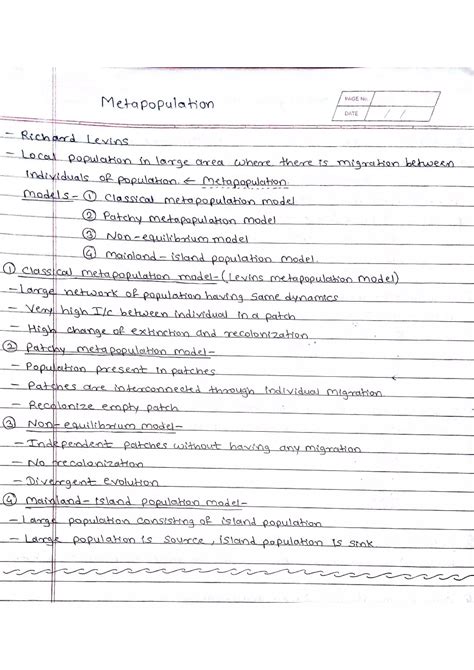 Metapopulation
PAGE No.
DATE / /
- Richard Levins
- Local population in large area where there is migration between
individuals of population. ← Metapopulation
Models - ① Classical metapopulation model
② Patchy metapopulation model
③ Non-equilibrium model
④ mainland-island population model.
① Classical metapopulation model - (Levins metapopulation model)
- Large network of population having same dynamics
- Very high I/c between individual in a patch
- High change of extinction and recolonization
② Patchy metapopulation model -
- Population present in patches
- Patches are interconnected through individual migration
- Recolonize empty patch
③ Non-equilibrium model -
- Independent patches without having any migration
- No recolonization
- Divergent evolution
④ Mainland-island population model -
- Large population consisting of island population
- Large population is source, island population is sink